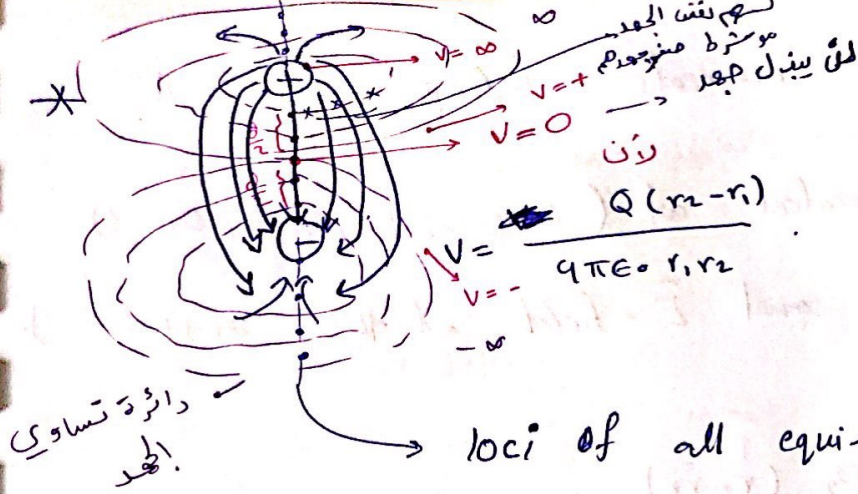 ∞
لهم نفس الجهد
V = ∞
مو شرط صفر جهدهم
V = +
V = 0 → لن يبذل جهد
لأن
V = Q (r2 - r1) / 4πϵ0 r1 r2
V = -
- ∞
دائرة تساوي
الجهد
loci of all equi-